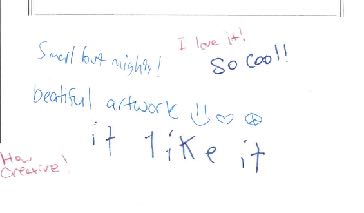 I love it!
Small but mighty!
so cool!
beatiful artwork
it like it
How
Creative!